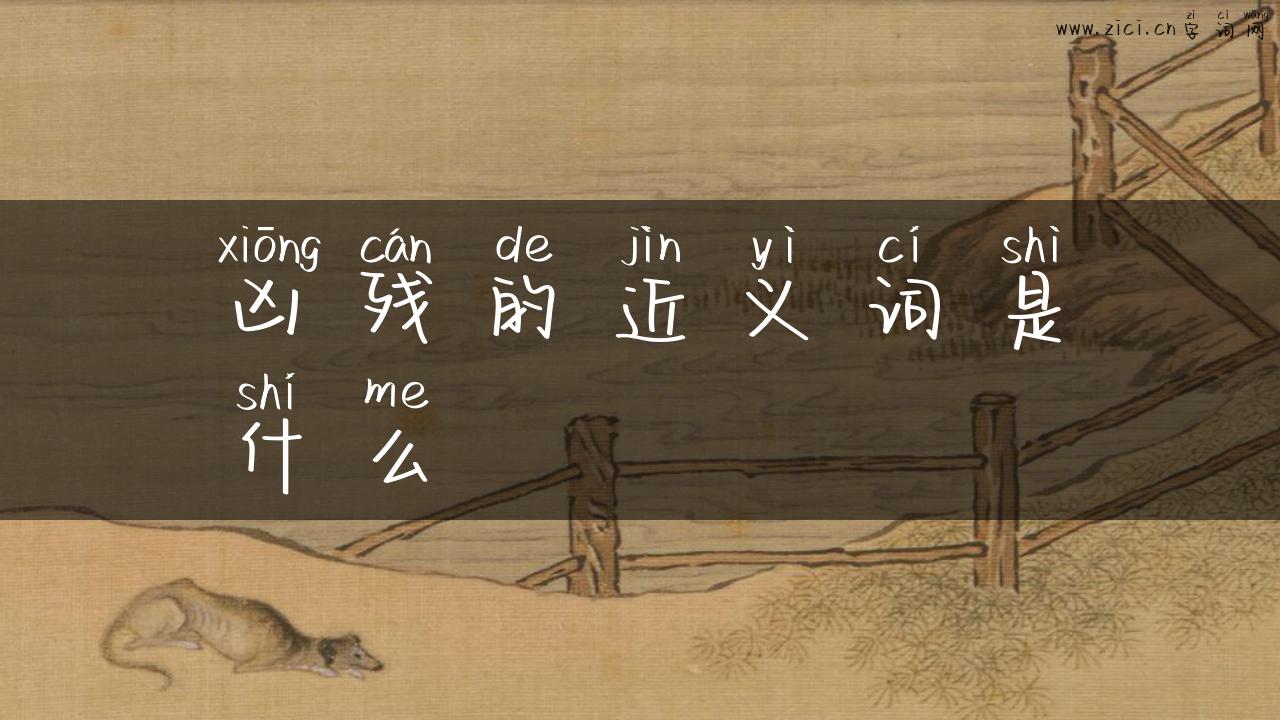 zì cí wǎng
www.zici.cn 字词网
xiōng cán de jìn yì cí shì
凶残的近义词是
shí me
什么